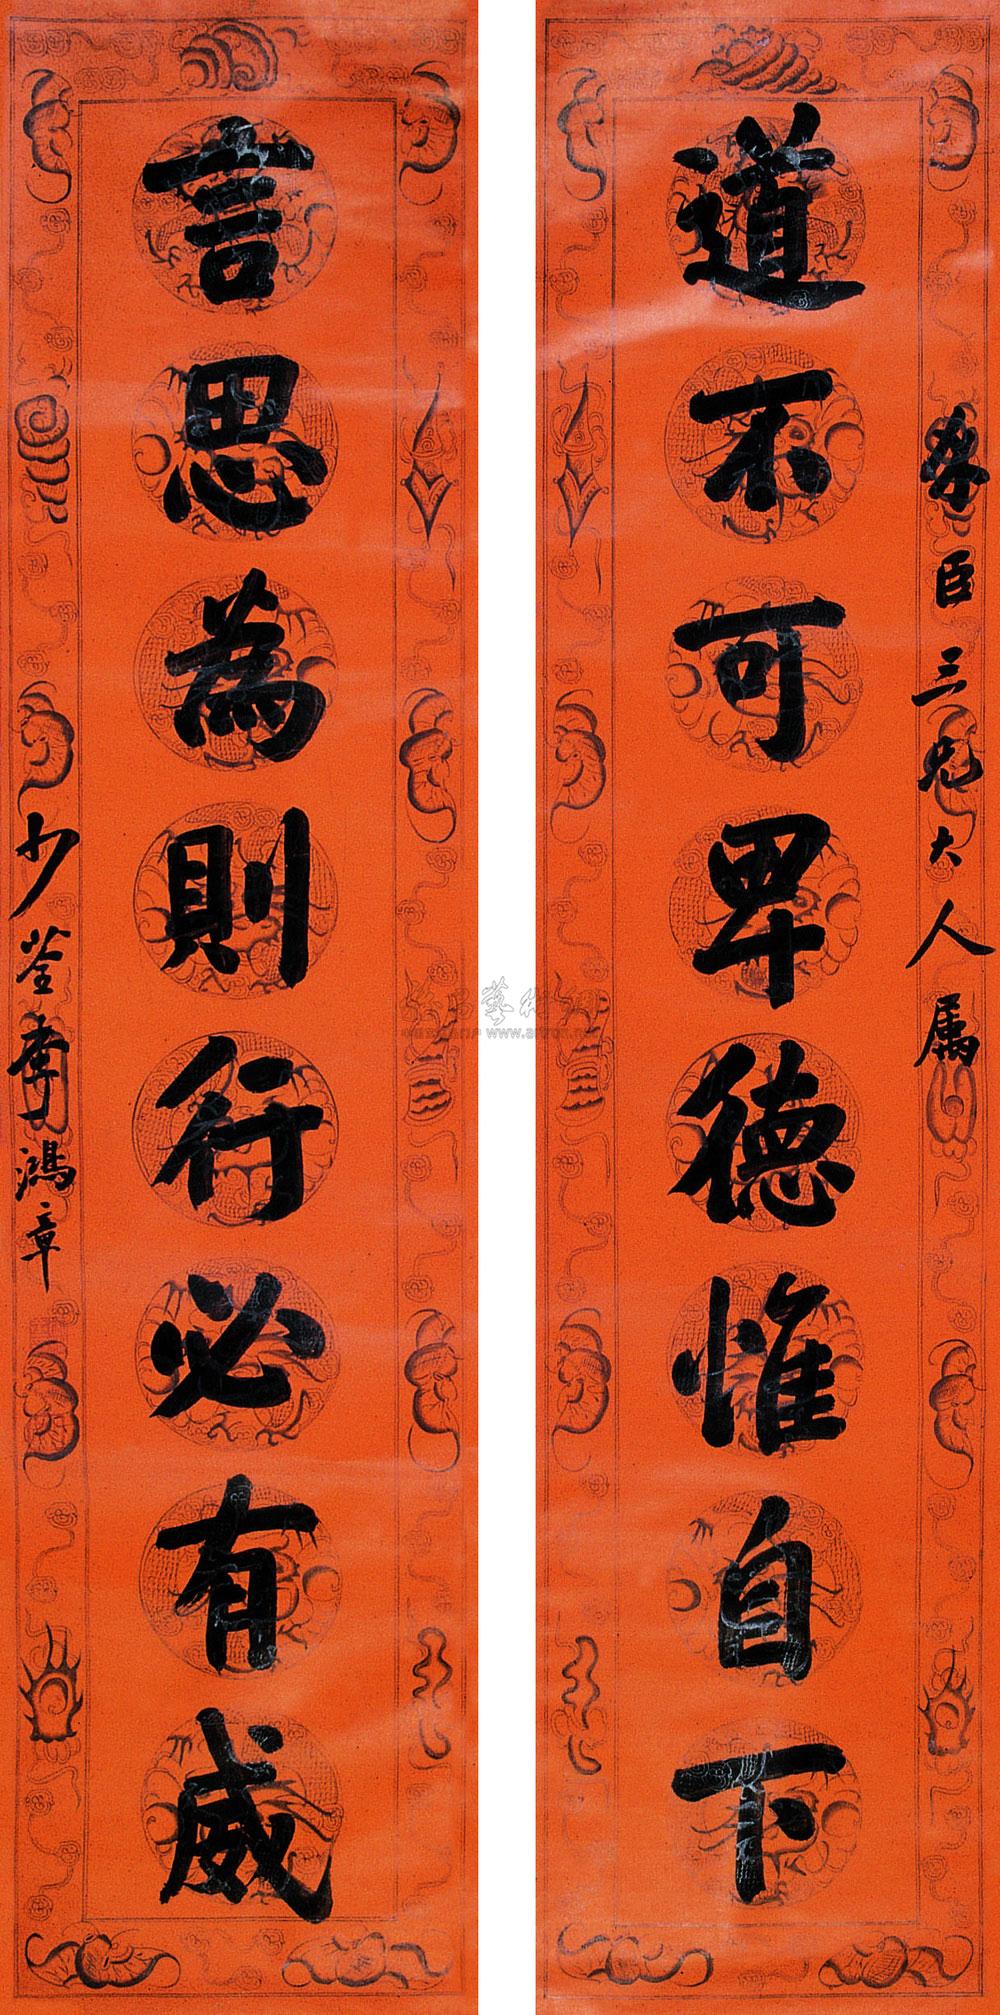 道不可卑德惟自下
臣三兄大人属
言思為則行必有威
少荃李鴻章